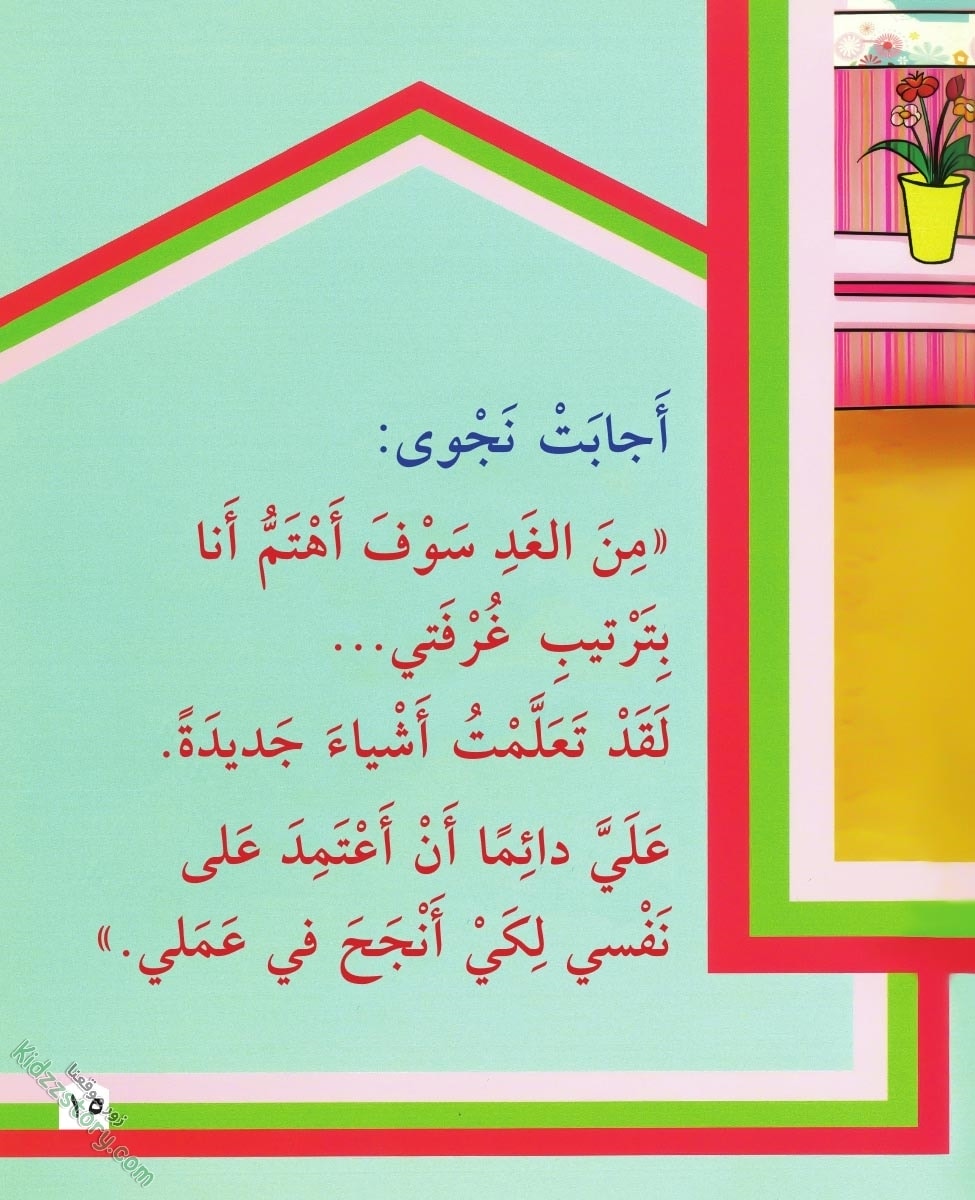 أَجابَتْ نَجْوى:
«مِنَ الغَدِ سَوْفَ أَهْتَمُّ أَنا
بِتَرْتيبِ غُرْفَتي...
لَقَدْ تَعَلَّمْتُ أَشْياءَ جَديدَةً.
عَلَيَّ دائِمًا أَنْ أَعْتَمِدَ عَلى
نَفْسي لِكَيْ أَنْجَحَ في عَمَلي.»
زوروا موقعنا
Kidzzstory.com